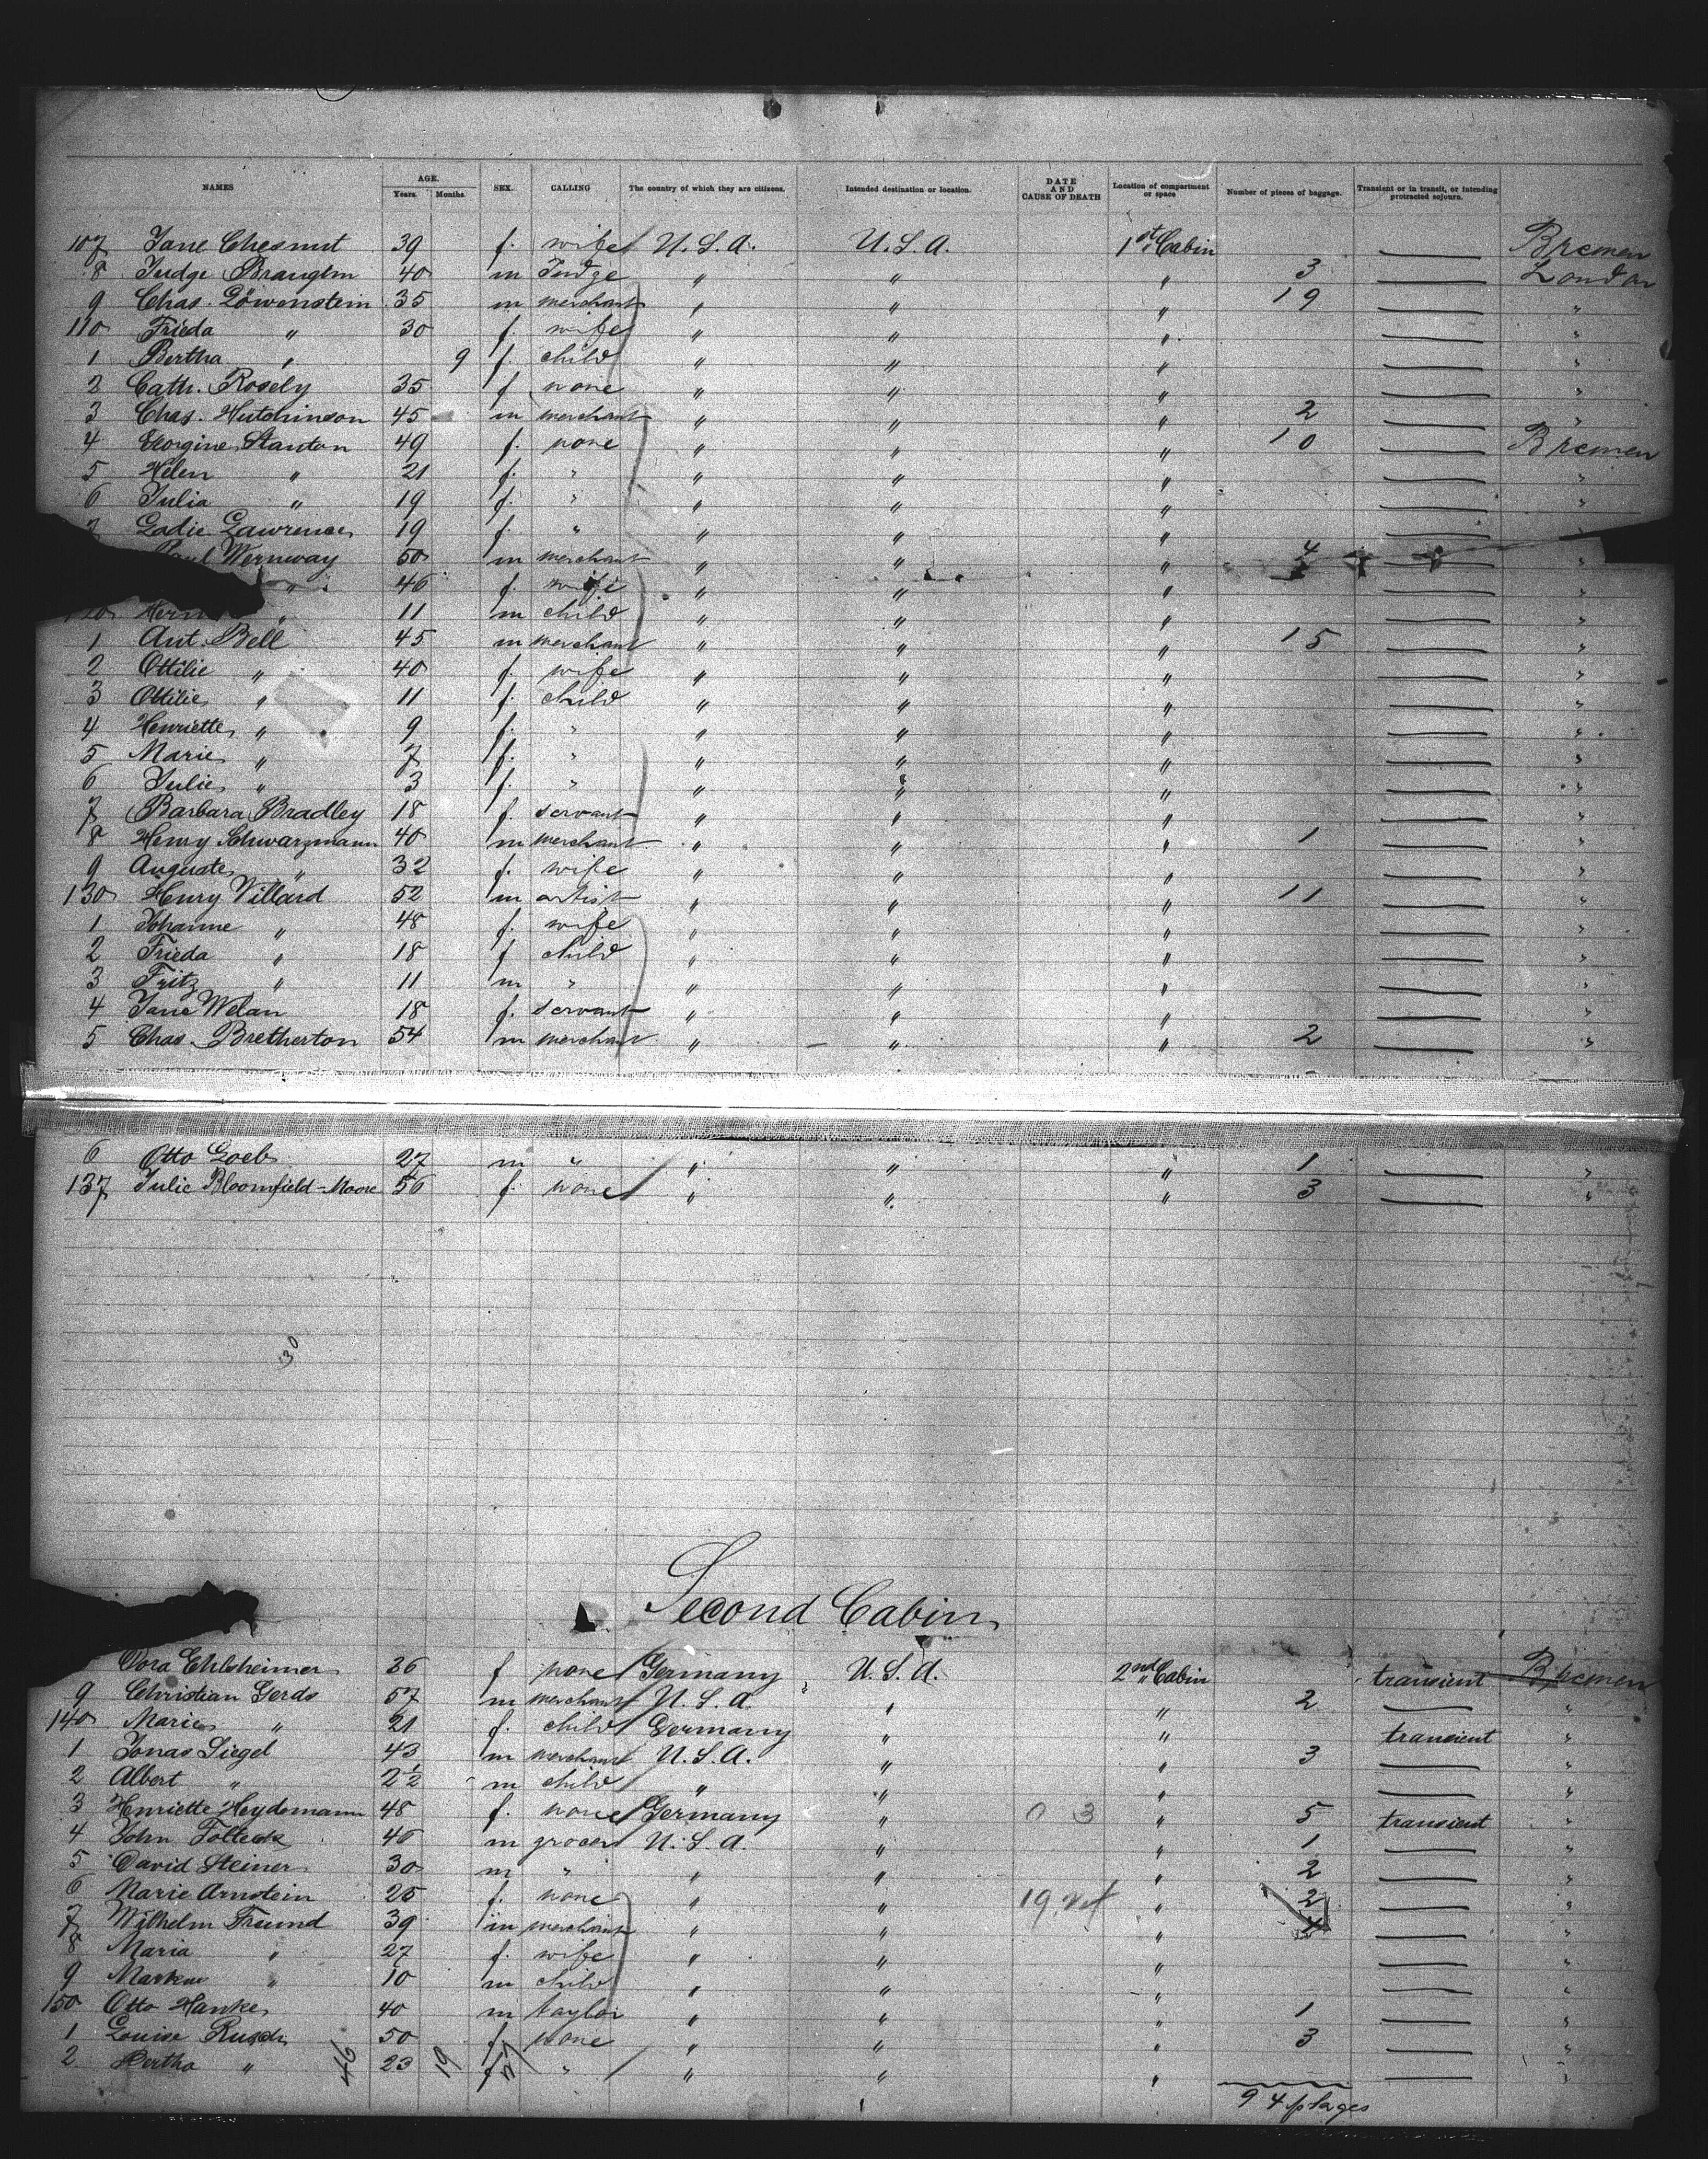 NAMES AGE. Years. Months. SEX. CALLING The country of which they are citizens. Intended destination or location. DATE AND CAUSE OF DEATH Location of compartment or space Number of pieces of baggage. Transient or in transit, or intending protracted sojourn.
107 Jane Chesnut 39 f. wife U.S.A. U.S.A. 1st Cabin — Bremen
8 Judge 40 m Judge " " " 3 — London
9 Chas. Löwenstein 35 m merchant " " " 19 — "
110 Frieda " 30 f. wife " " " — "
1 Bertha " 9 f. child " " " — "
2 Cath. Rosely 35 f none " " " — "
3 Chas. Hutchinson 45 m merchant " " " 2 — "
4 Georgine Stanton 49 f. none " " " 10 — Bremen
5 Helen " 21 f. " " " " — "
6 Julia " 19 f. " " " " — "
7 Sadie Lawrence 19 f. " " " " — "
Wernway 50 m merchant " " " 4 — "
" 46 f. wife " " " — "
120 Herm " 11 m child " " " — "
1 Ant. Bell 45 m merchant " " " 15 — "
2 Ottilie " 40 f. wife " " " — "
3 Ottilie " 11 f. child " " " — "
4 Henriette " 9 f. " " " " — "
5 Marie " 7 f. " " " " — "
6 Julie " 3 f. " " " " — "
7 Barbara Bradley 18 f. servant " " " — "
8 Henry Schwarzmann 40 m merchant " " " 1 — "
9 Auguste " 32 f. wife " " " — "
130 Henry Villard 52 m artist " " " 11 — "
1 Johanne " 48 f. wife " " " — "
2 Frieda " 18 f child " " " — "
3 Fritz " 11 m " " " " — "
4 Jane Welan 18 f. servant " " " — "
5 Chas. Bretherton 54 m merchant " " " 2 — "
6 Otto Loeb 27 m " " " " 1 — "
137 Julie Bloomfield-Moore 56 f. none " " " 3 — "
30
Second Cabin
Dora Ehlsheimer 26 f none Germany U.S.A. 2nd Cabin transient Bremen
9 Christian Gerds 57 m merchant U.S.A " " 2 — "
140 Marie " 21 f. child Germany " " transient "
1 Jonas Siegel 43 m merchant U.S.A. " " 3 — "
2 Albert " 2½ m child " " " — "
3 Henriette Heydemann 48 f. none Germany " 0 3 " 5 transient "
4 John 46 m grocer U.S.A. " " 1 — "
5 David Steiner 30 m " " " " 2 — "
6 Marie Arnstein 25 f. none " " 19. " 2 — "
7 Wilhelm Freund 39 m merchant " " " 4 — "
8 Maria " 27 f. wife " " " — "
9 Markus " 10 m child " " " — "
150 Otto Hanke 40 m taylor " " " 1 — "
1 Louise Rusch 50 f. none " " " 3 — "
2 Hertha " 46 23 19 f 27 " " " " — "
94 pkages